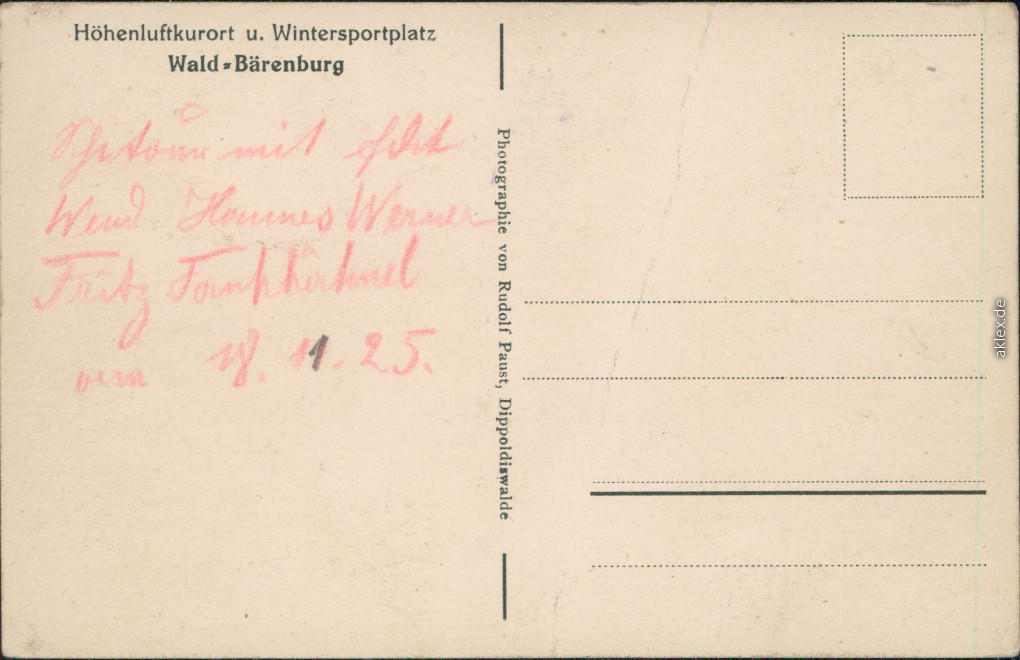 Höhenluftkurort u. Wintersportplatz
Wald=Bärenburg
mit
Hannes Werner
Fritz
am 18. 11. 25.
Photographie von Rudolf Paust, Dippoldiswalde
aklex.de